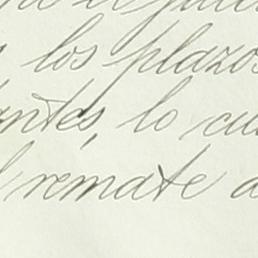 los plazos
antes, lo cu
l remate a